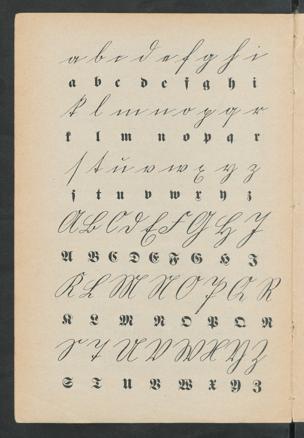 a b c d e f g h i
a b c d e f g h i
k l m n o p q r
k l m n o p q r
s t u v w x y z
s t u v w x y z
A B C D E F G H I
A B C D E F G H I
K L M N O P Q R
K L M N O P Q R
S T U V W X Y Z
S T U V W X Y Z